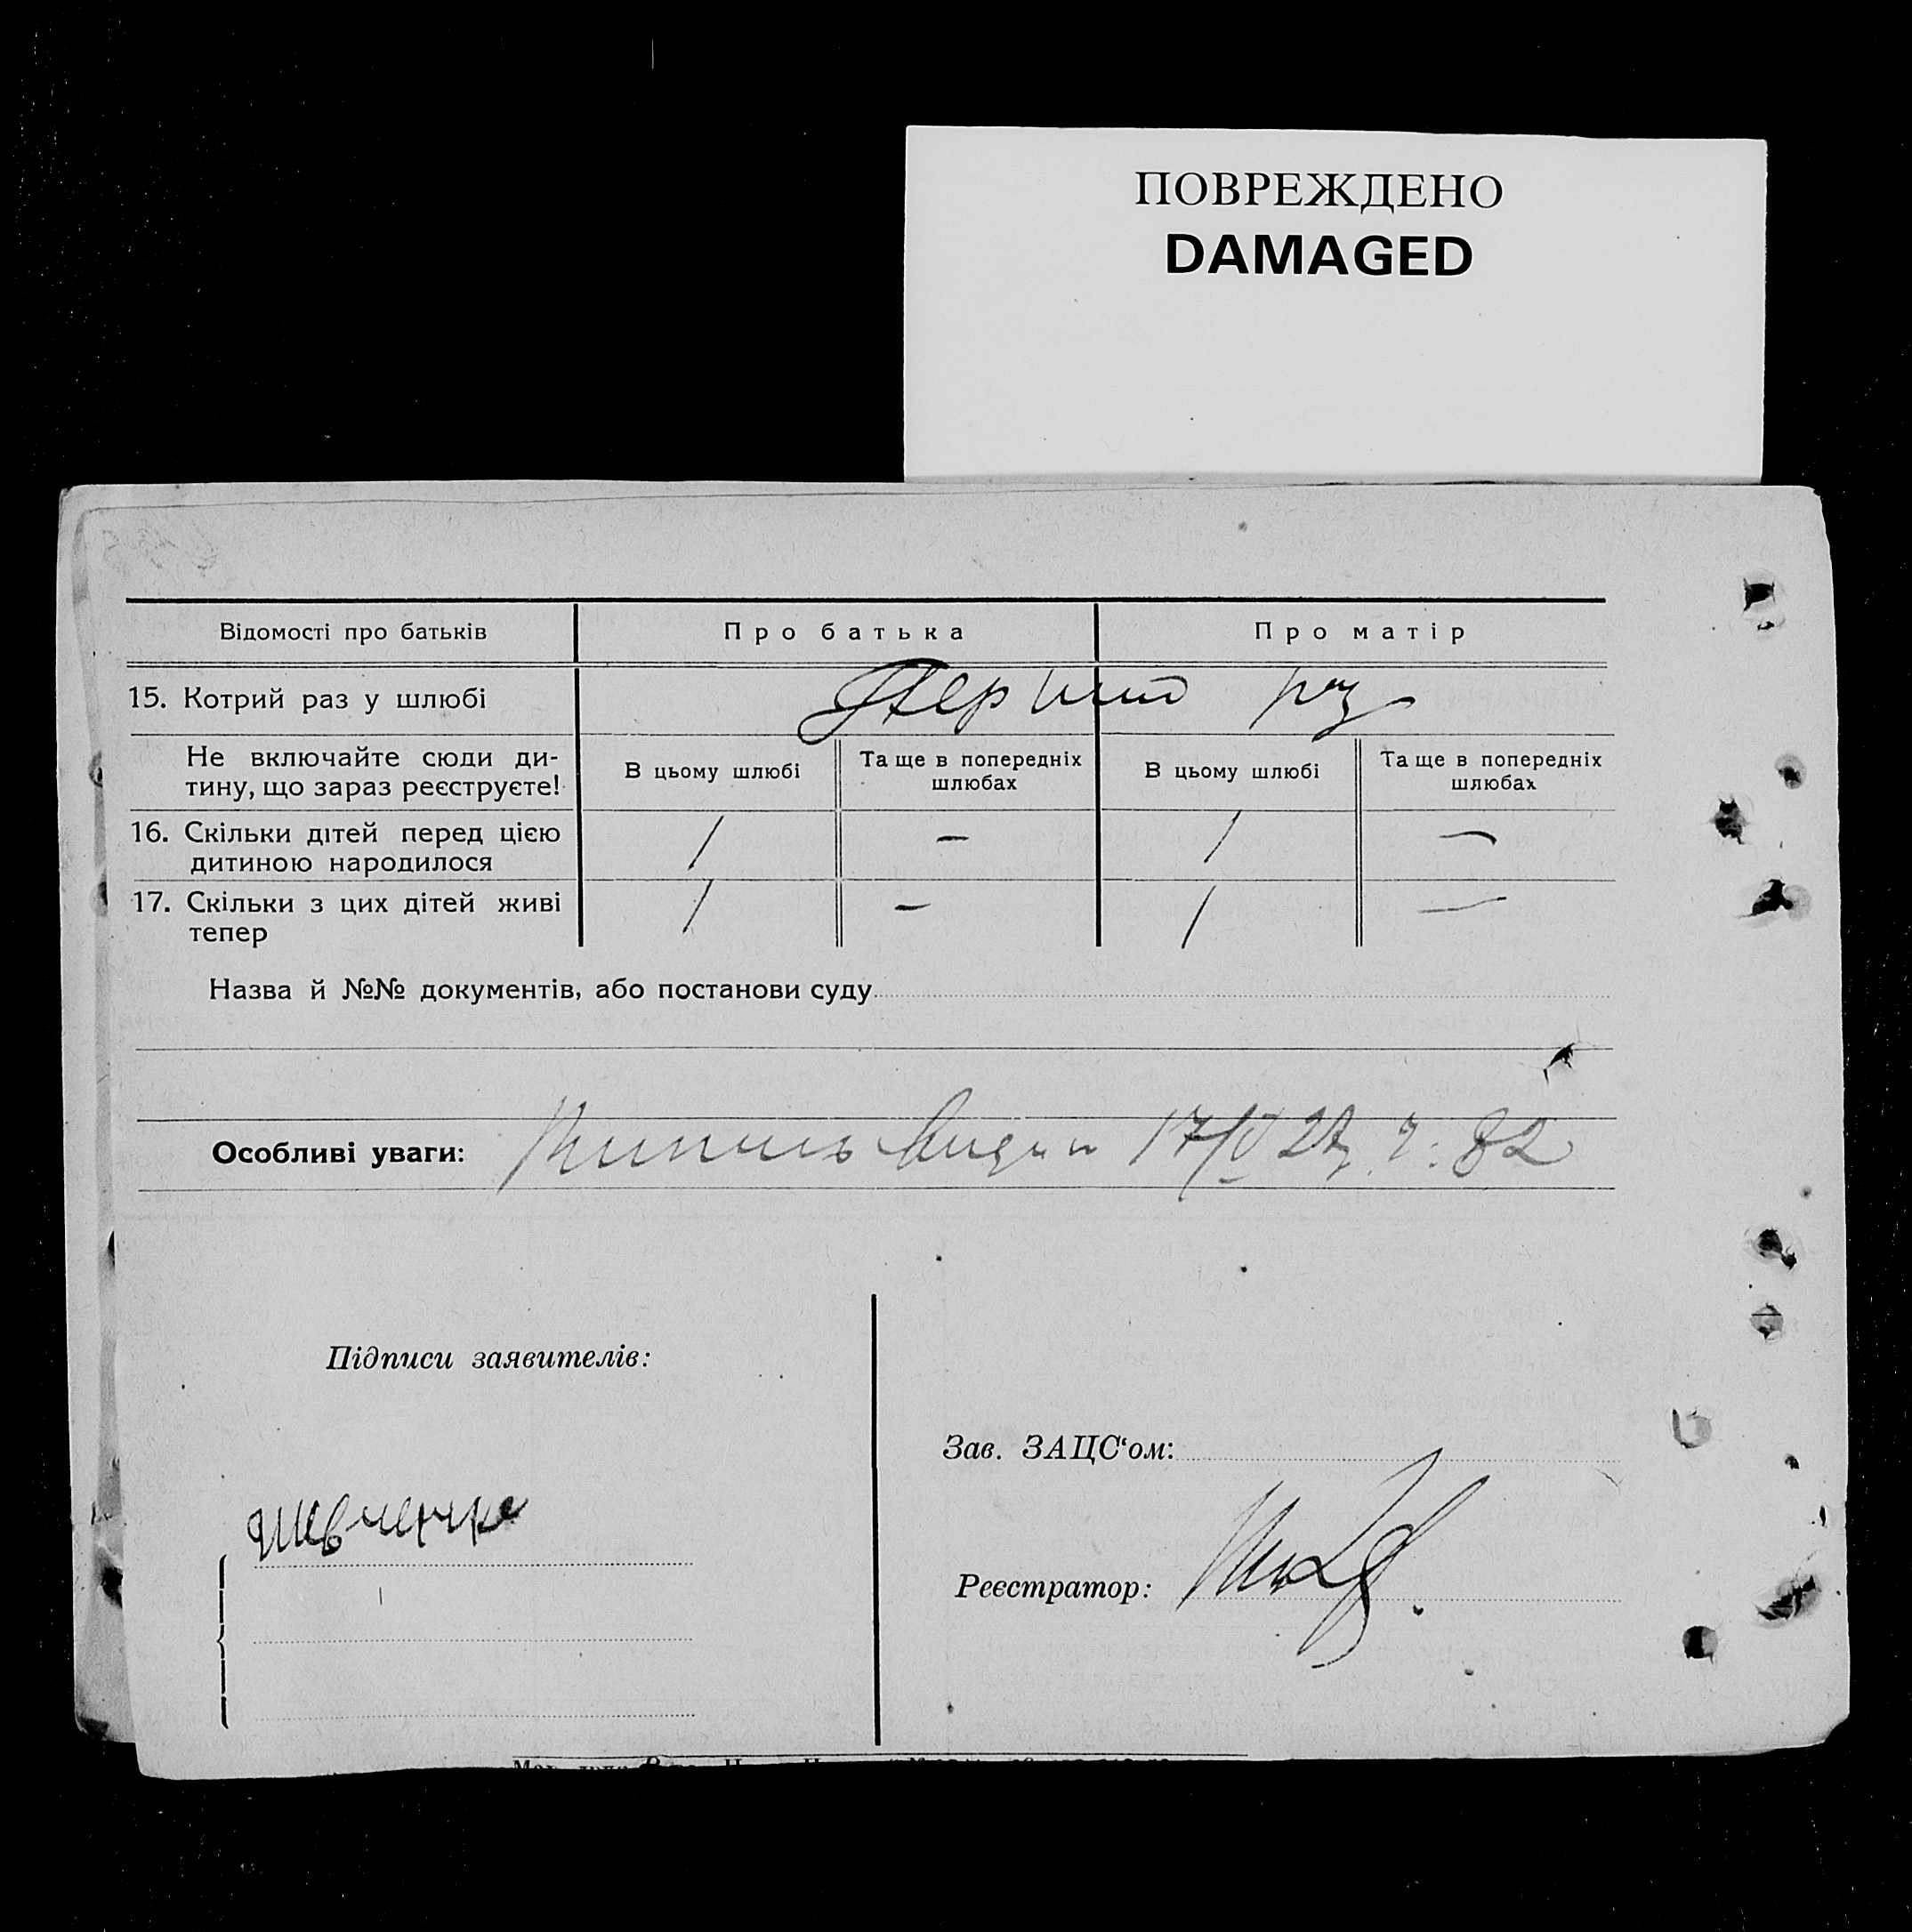 ПОВРЕЖДЕНО
DAMAGED
Відомості про батьків
Про батька
Про матір
15. Котрий раз у шлюбі
Перший раз
Не включайте сюди ди-
тину, що зараз реєструєте!
В цьому шлюбі
Та ще в попередніх
шлюбах
В цьому шлюбі
Та ще в попередніх
шлюбах
16. Скільки дітей перед цією
дитиною народилося
1 — 1 —
17. Скільки з цих дітей живі
тепер
1 — 1 —
Назва й №№ документів, або постанови суду
Особливі уваги:
17/V 82
Підписи заявителів:
Зав. ЗАЦС‘ом:
Шевченко
Реєстратор: